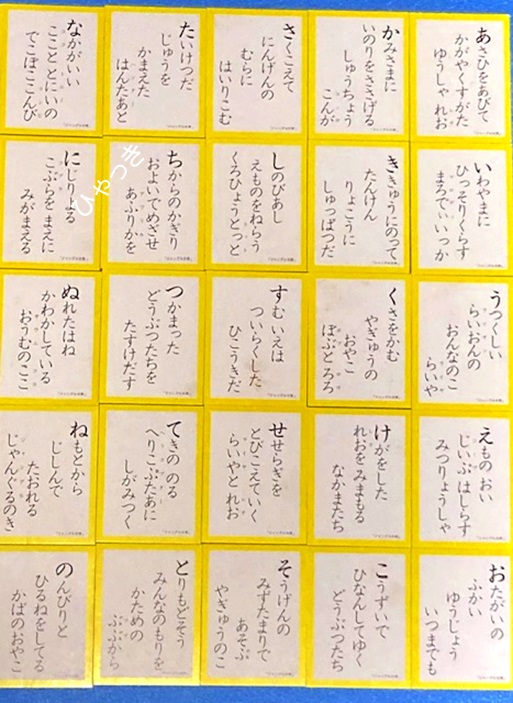 あさひをあびて
かがやくすがた
ゆうしゃ れお
いわやまに
ひっそりくらす
まろでぃいっか
うつくしい
らいおんの
おんなのこ
らいや
えもの おい
じいぷ はしらす
みつりょうしゃ
おたがいの
ふかい
ゆうじょう
いつまでも
かみさまに
いのりをささげる
しゅうちょう
こんが
ききゅうにのって
たんけん
りょこうに
しゅっぱつだ
くさをかむ
やぎゅうの
おやこ
ぼぶと ろろ
けがをした
れおをみまもる
なかまたち
こうずいで
ひなんしてゆく
どうぶつたち
さくこえて
にんげんの
むらに
はいりこむ
しのびあし
えものをねらう
くろひょうとっと
すむ いえは
ついらくした
ひこうきだ
せせらぎを
とびこえていく
らいやと れお
そうげんの
みずたまりで
あそぶ
やぎゅうのこ
たいけつだ
じゅうを
かまえた
はんたあと
ちからのかぎり
およいでめざせ
あふりかを
つかまった
どうぶつたちを
たすけだす
てきの のる
へりこぷたあに
しがみつく
とりもどそう
みんなのもりを
かための
ぶぶから
なかがいい
ここと とにいの
でこぼここんび
にじりよる
こぶらを まえに
みがまえる
ぬれたはね
かわかしている
おうむのここ
ねもとから
じしんで
たおれる
じゃんぐるのき
のんびりと
ひるねをしてる
かばのおやこ
ひゃっき